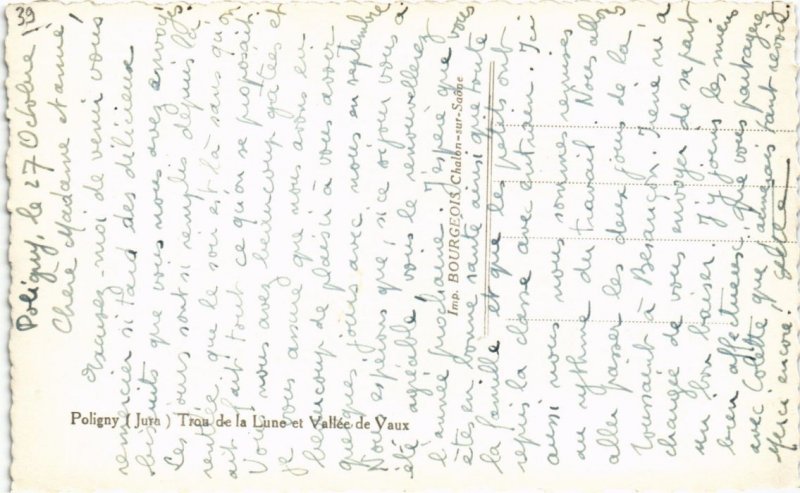 39
Poligny, le 27 Octobre
Chère Madame et amie,
Excusez-moi de venir vous
remercier si tard des délicieux
biscuits que vous nous avez envoyés.
Les jours sont si remplis depuis la
rentrée que le soir est là sans qu'on
ait fait tout ce qu'on se proposait.
Vous nous avez beaucoup gâtées et
je vous assure que nous avons eu
beaucoup de plaisir à vous avoir
quelques jours avec nous en septembre.
Nous espérons que, si ce séjour vous a
été agréable, vous le renouvellerez
l'année prochaine. J'espère que vous
êtes en bonne santé ainsi que toute
la famille et que les petits ont
repris la classe avec entrain. Ici
aussi nous nous sommes remises
au rythme du travail. Nous allons
aller passer les deux jours de la
Toussaint à Besançon. Irène m'a
chargée de vous envoyer de sa part
un bon baiser. J'y joins les miens
bien affectueux, que vous partagerez
avec Colette que j'aimerais tant revoir.
Merci encore.
Imp. BOURGEOIS, Chalon-sur-Saône
Poligny (Jura) Trou de la Lune et Vallée de Vaux